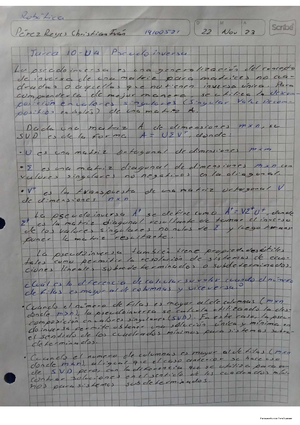 Robótica
Pérez Reyes Christian Iván 22 Nov 23
Scribe
Tarea 10 - UA: Pseudoinversa
La pseudoinversa es una generalización del concepto
de inversa de una matriz para matrices no cua-
dradas o aquellas que no tienen inversa única. Para
comprenderla de mejor manera, se utiliza la descom-
posición en valores singulares (Singular Value Decom-
position) de una matriz A.
Dada una matriz A de dimensiones mxn, su
SVD es de la forma A = UΣV*, donde:
- U es una matriz ortogonal de dimensiones mxm
- Σ es una matriz diagonal de dimensiones mxn con
valores singulares no negativos en la diagonal.
- V* es la transpuesta de una matriz ortogonal V
de dimensiones nxn
La pseudoinversa A⁺ se define como A⁺=VΣ⁺U*, donde
Σ⁺ la matriz diagonal resultante de tomar el inverso
de los valores singulares no nulos de Σ y luego trans-
poner la matriz resultante.
La pseudoinversa también tiene propiedades útiles
tales como permitir la resolución de sistemas de ecua-
ciones lineales sobredeterminados o subdeterminados.
¿Cuál es la diferencia de cálculo cuando el número
de filas es mayor al de columnas y viceversa?
- Cuando el número de filas es mayor al de columnas (mxn
donde m>n), la pseudoinversa se calcula utilizando la des-
composición en valores singulares (SVD). En este caso, la pseu-
doinversa permite obtener una solución única y mínima en
el sentido de los cuadrados mínimos para sistemas sobre-
determinados.
- Cuando el número de columnas es mayor al de filas (mxn
donde m<n), al igual que el caso anterior, se hace uso
de SVD pero con la diferencia que se utiliza para en-
contrar soluciones en el sentido de los cuadrados míni-
mos para sistemas subdeterminados.